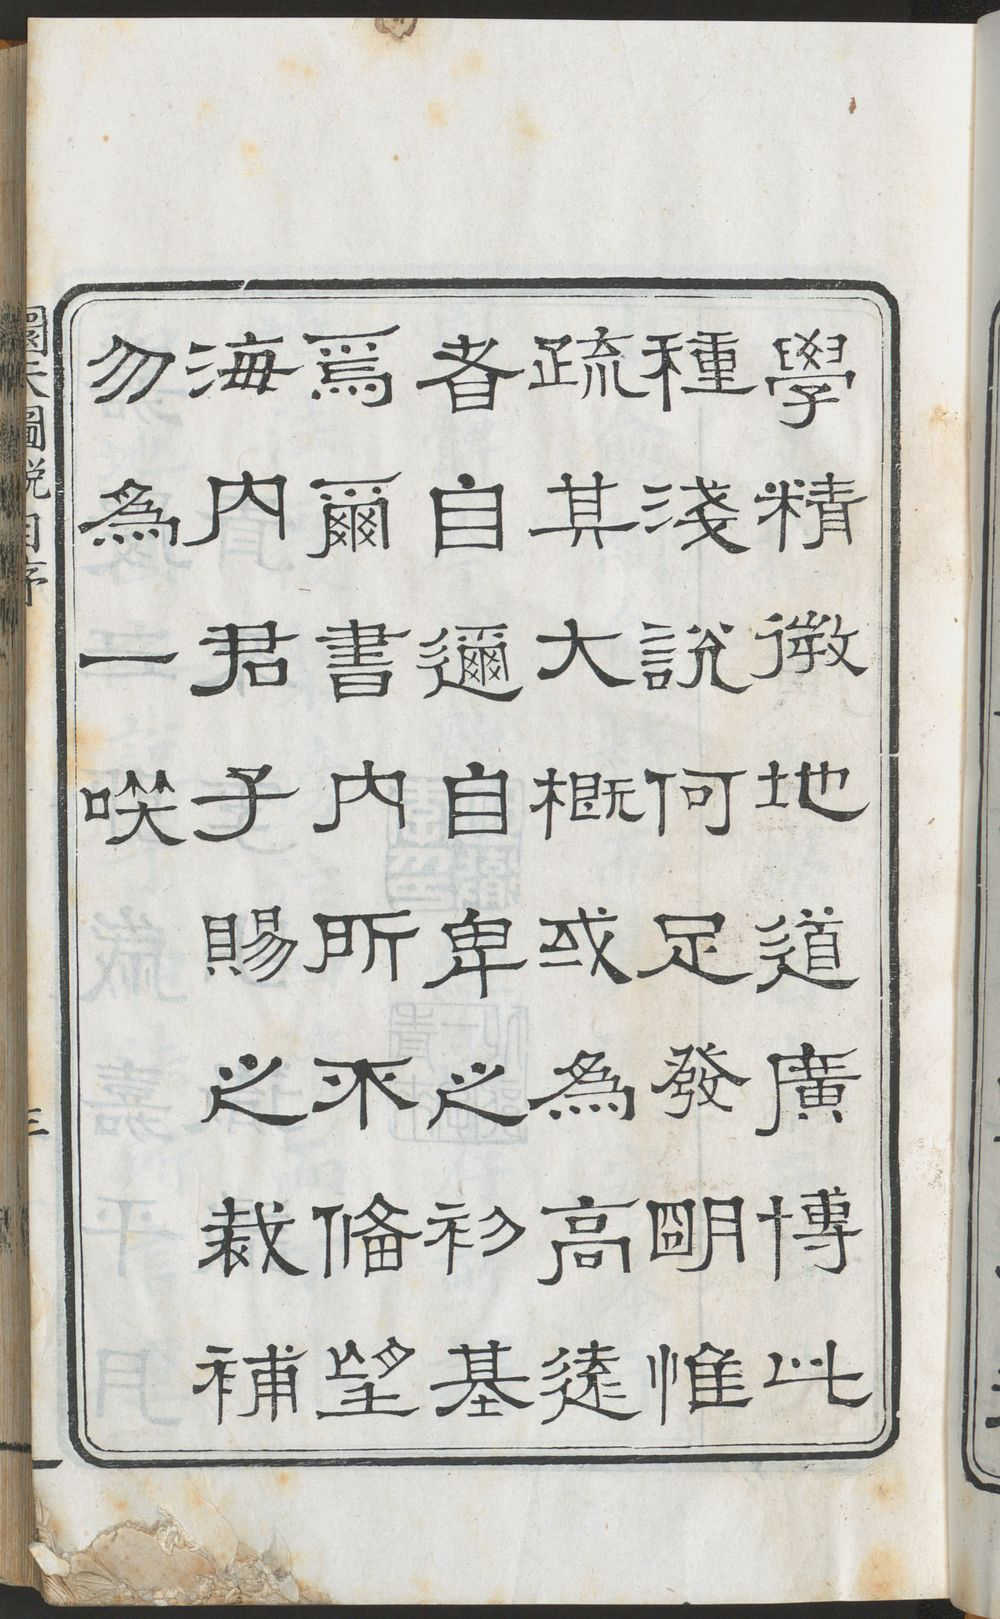 學精微地道廣博此
種淺說何足發明惟
疏其大概或為高遠
者自邇自卑之初基
焉爾書內所不備望
海內君子賜之裁補
勿為一噗
圜天圖說自序
三